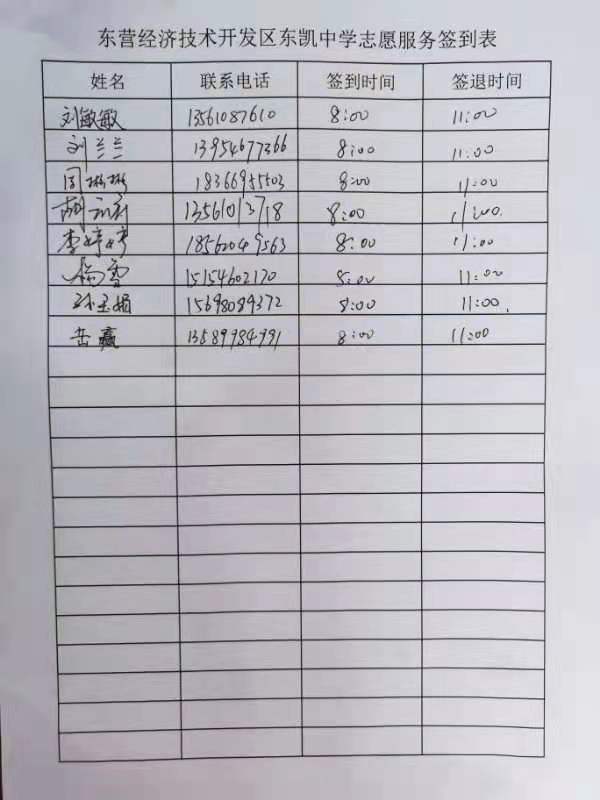 东营经济技术开发区东凯中学志愿服务签到表
姓名 联系电话 签到时间 签退时间
刘敏敏 13561087610 8:00 11:00
刘兰兰 13954677366 8:00 11:00
周彬彬 18366955503 8:00 11:00
胡 8:00 11:00
李婷婷 18562049563 8:00 11:00
杨雪 15154602170 8:00 11:00
孙玉娟 15698089372 8:00 11:00.
岳赢 13589984991 8:00 11:00